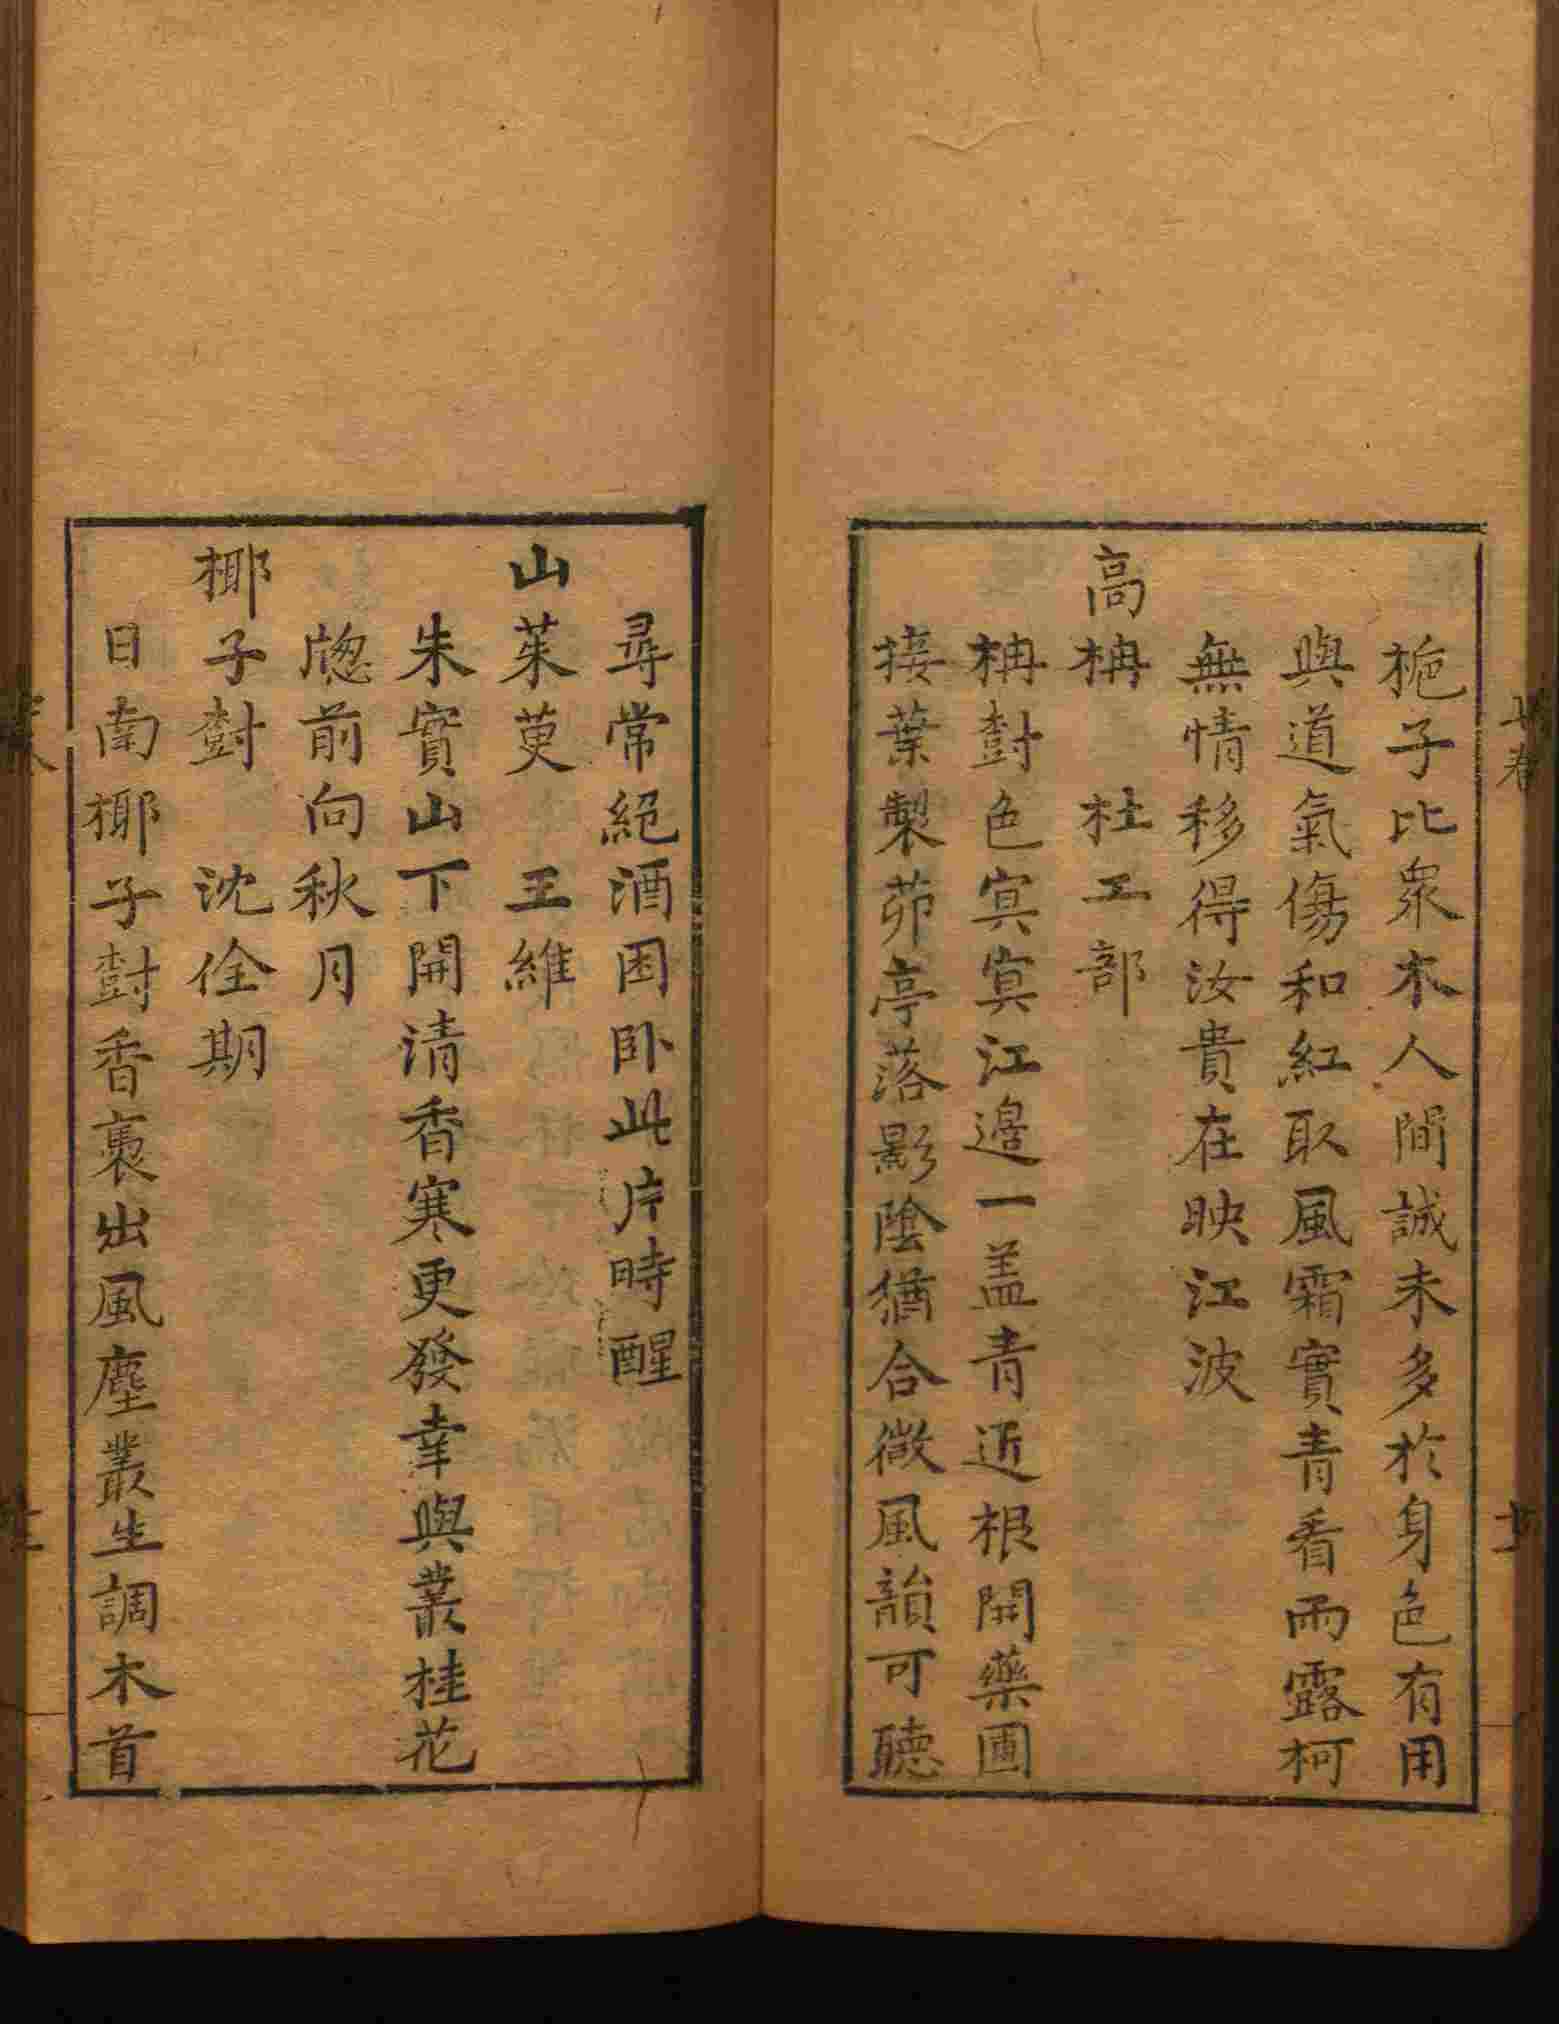 栀子比衆木人間誠未多於身色有用
與道氣傷和紅取風霜實青看雨露柯
無情移得汝貴在映江波
高柟　杜工部
柟樹色冥冥江邊一盖青近根開藥圃
接葉製茆亭落影陰猶合微風韻可聽
尋常絕酒困卧此片時醒
山茱萸　王維
朱實山下開清香寒更發幸與叢桂花
牕前向秋月
椰子樹　沈佺期
日南椰子樹香裊出風塵叢生調木首